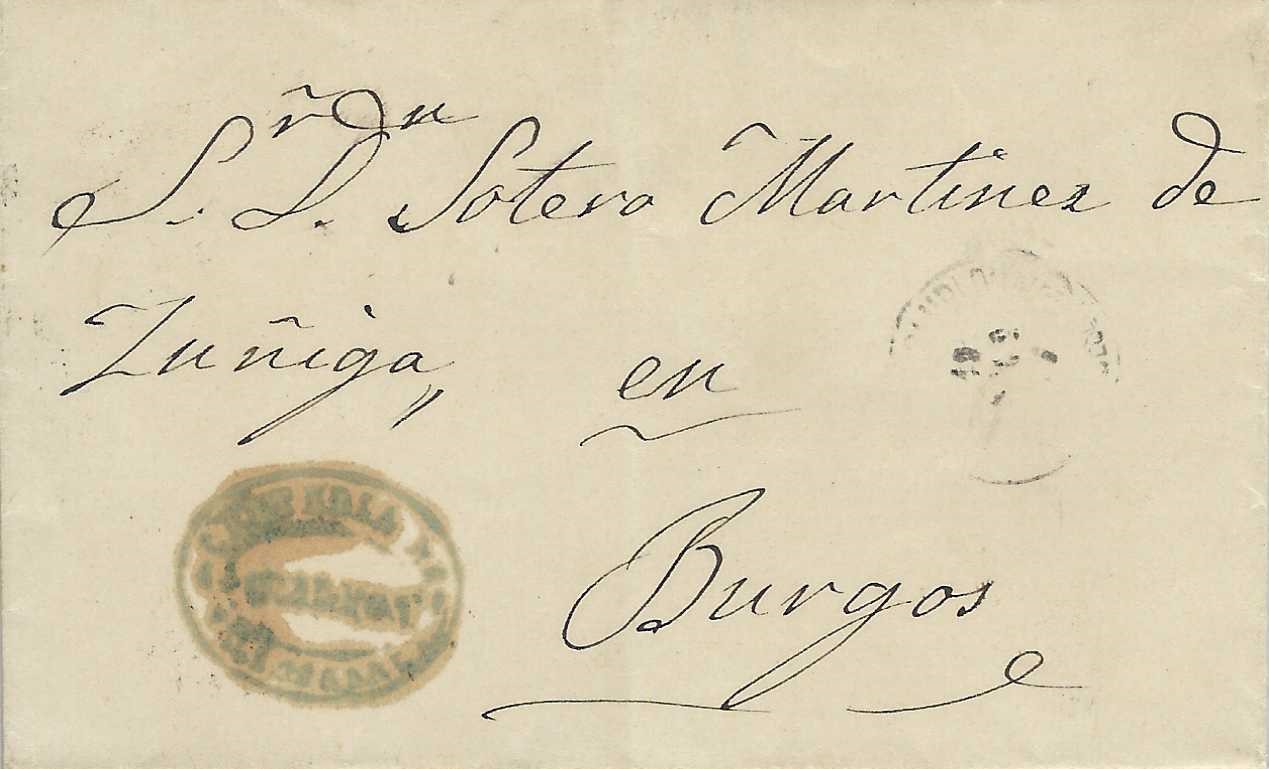 Sr. Dn. Sotero Martinez de
Zuñiga, en
Burgos